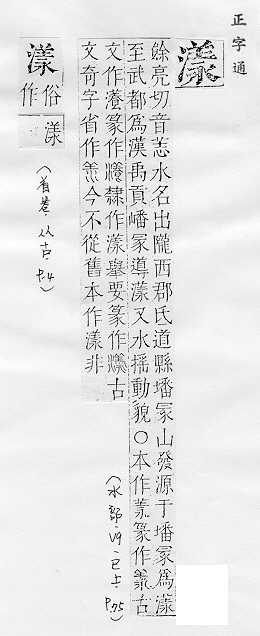 正字通
漾
餘亮切音恙水名出隴西郡氏道縣墦冢山發源于墦冢爲漾
至武都爲漢禹貢嶓冢導漾又水揺動貌○本作羕篆作羕古
文作瀁篆作瀁隸作漾舉要篆作瀁古
文奇字省作恙今不從舊本作漾非
(水部.四.巳上.P.75)
漾俗作漾
(首卷.从古.P.4)